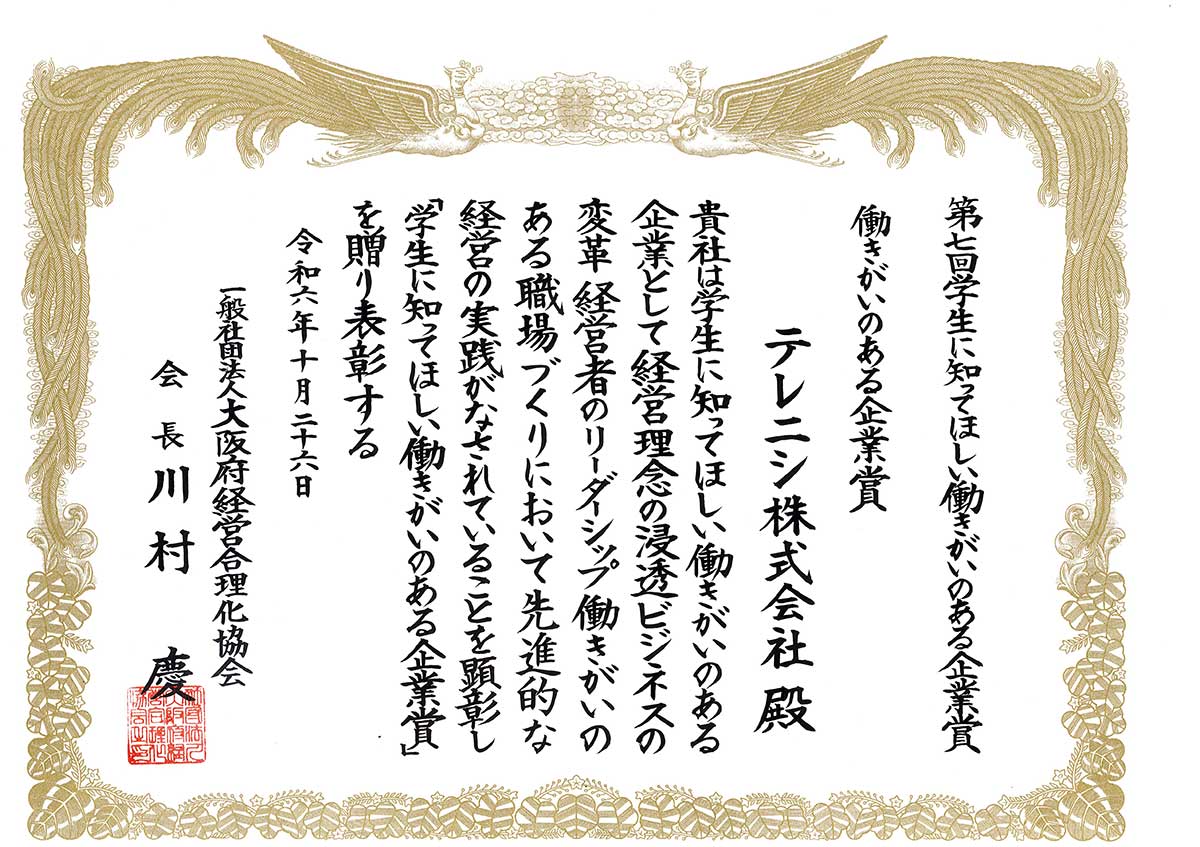 第七回学生に知ってほしい働きがいのある企業賞
働きがいのある企業賞
テレニシ株式会社 殿
貴社は学生に知ってほしい働きがいのある
企業として経営理念の浸透ビジネスの
変革 経営者のリーダーシップ 働きがいの
ある職場づくりにおいて先進的な
経営の実践がなされていることを顕彰し
「学生に知ってほしい働きがいのある企業賞」
を贈り表彰する
令和六年十月二十六日
一般社団法人大阪府経営合理化協会
会長 川村 慶